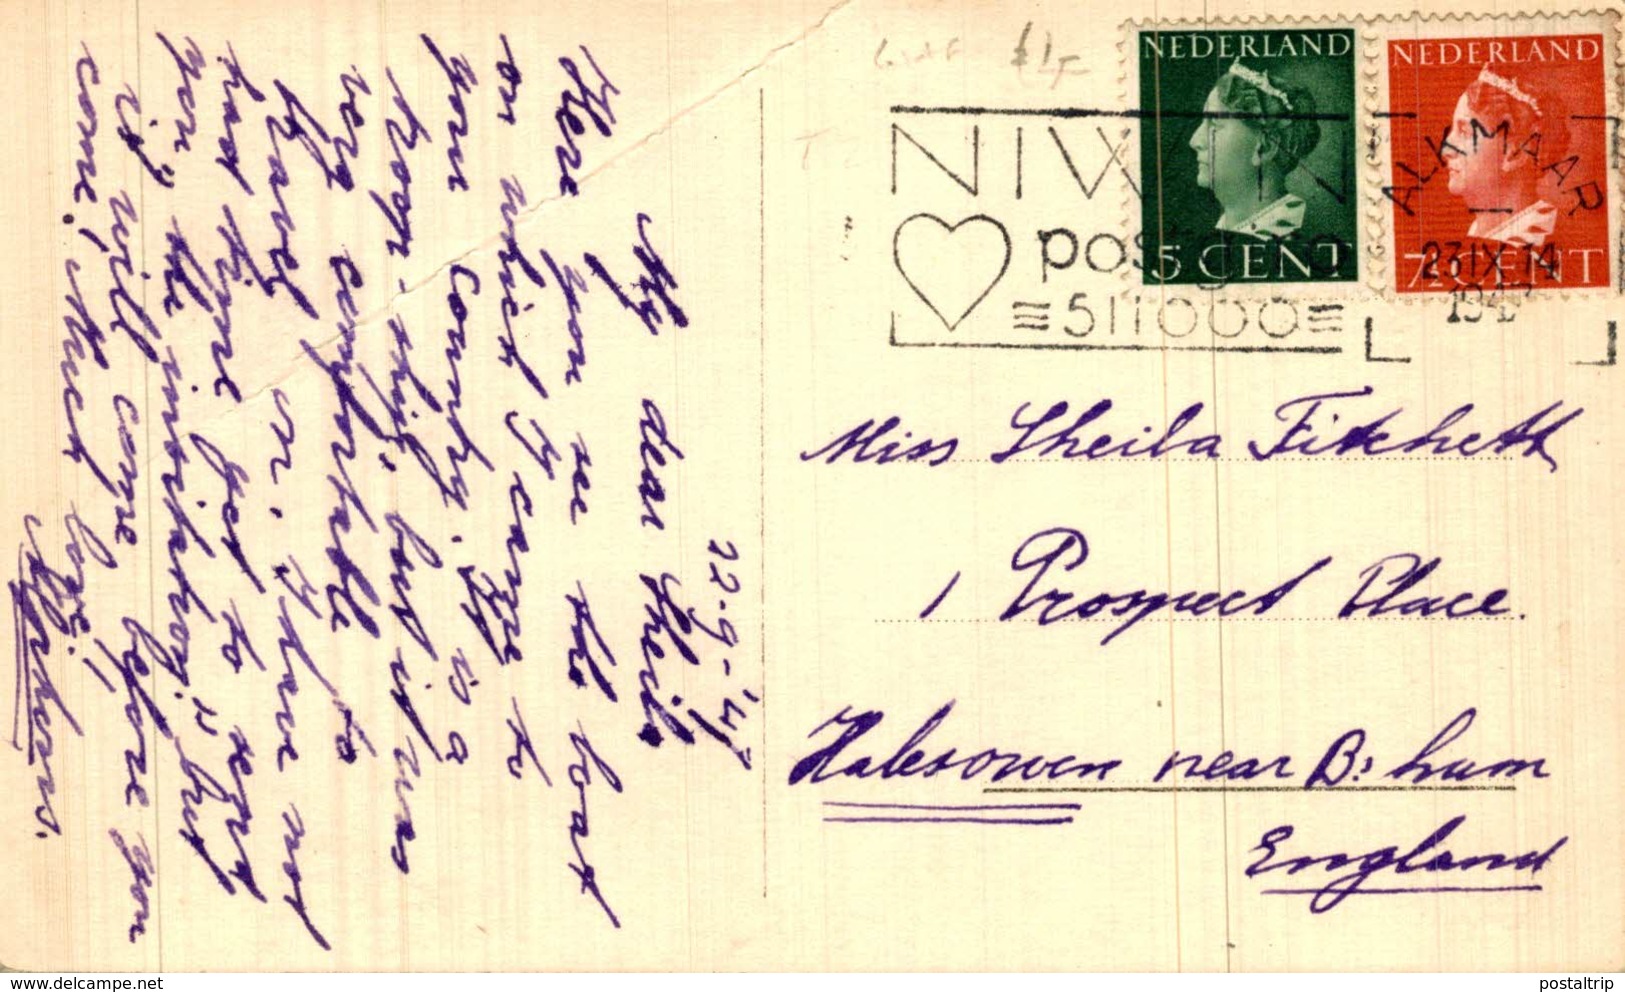 22-9-'47
My dear Sheila
Here you see the boat
on which I came to
your country. It is a
troop-ship, but it was
very comfortable to
travel in. I have not
had time yet to send
you "the invitation" but
it will come before you
come! Much love!
NEDERLAND
5 CENT
NEDERLAND
7½ CENT
NIWIN
postgiro
511000
ALKMAAR
23 IX 14
1947
Miss Sheila Fitchett
1 Prospect Place.
Halesowen near B:ham
England
postaltrip